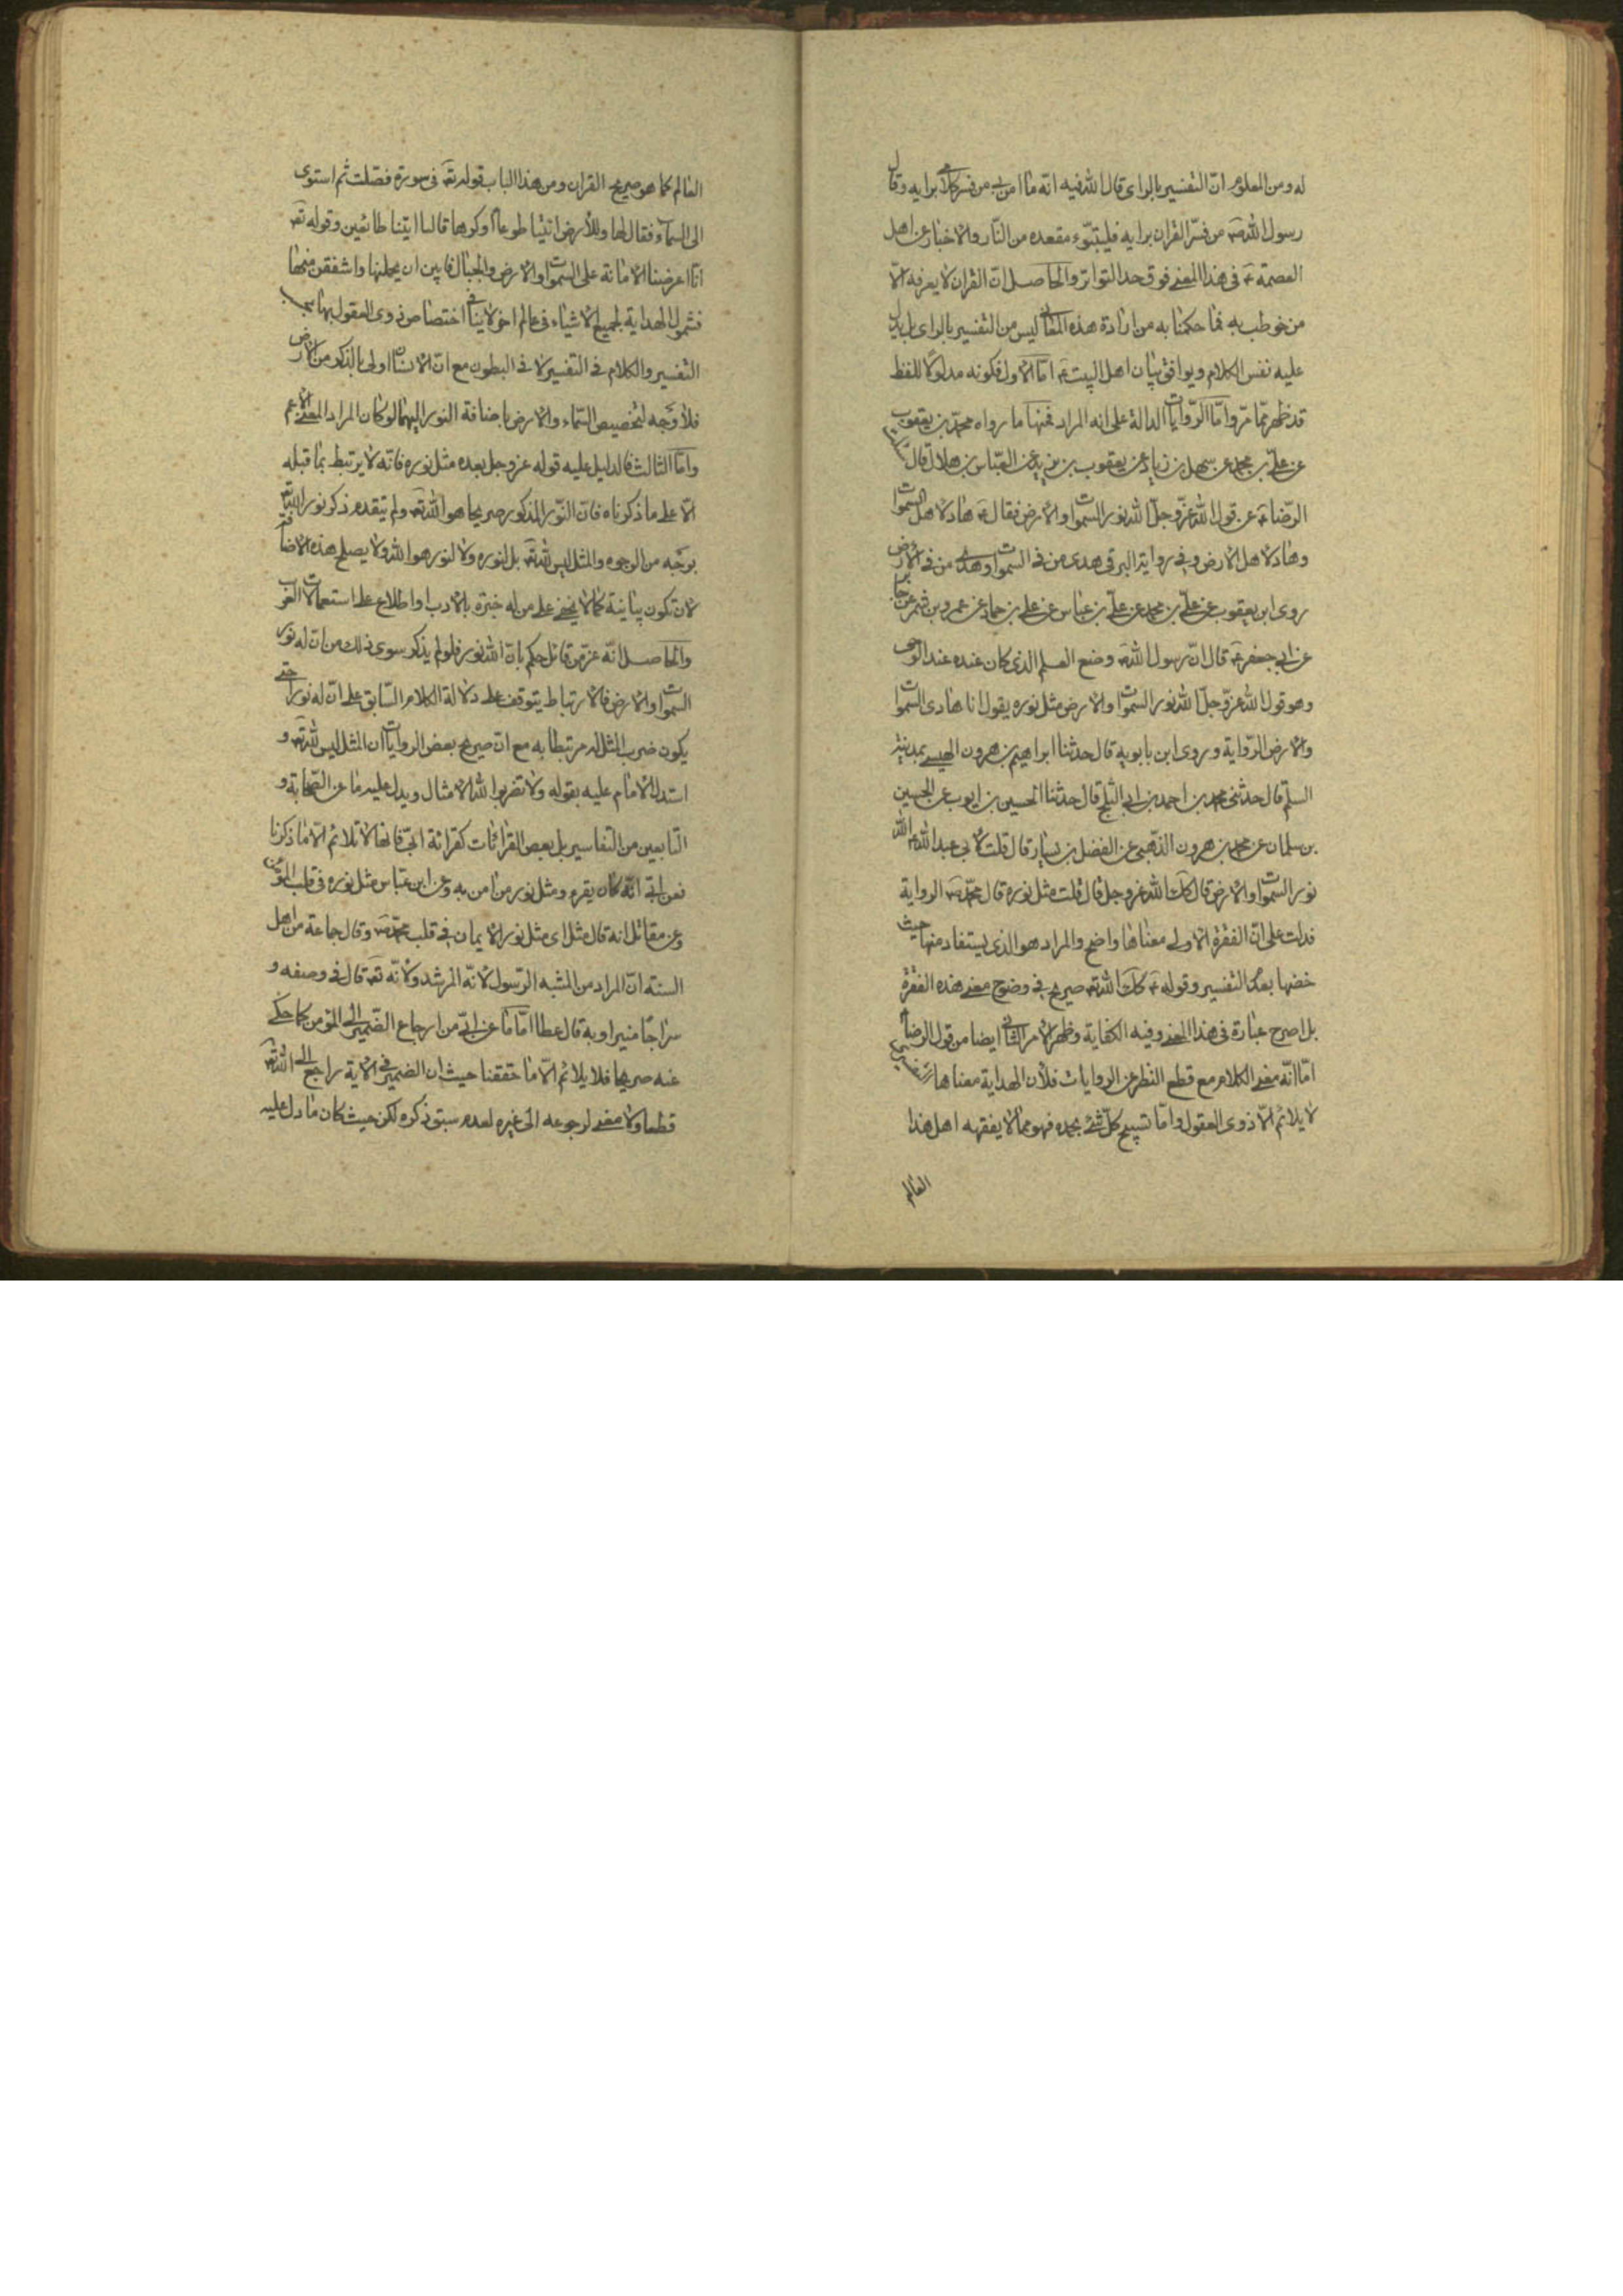 له ومن المعلوم انّ التفسير بالراى قال الله فيه انّه ما امن بى من فسر كلامى برايه وقال
رسول الله صه من فسّر القران برايه فليتبّوء مقعده من النّار والاخبار عن اهل
العصمة ع فى هذا المعنى فوق حد التواتر والحاصل انّ القران لا يعرفه الّا
من خوطب به فما حكمنا به من ارادة هذه المعانى ليس من التفسير بالراى بل يدل
عليه نفس الكلام ويوافق بيان اهل البيت ع امّا الاول فكونه مدلولًا للفظ
قد ظهر ممّا مرّ وامّا الرّوايات الدالة على انه المراد فمنها ما رواه محمّد بن يعقوب
عن على بن محمد عن سهل بن زياد عن يعقوب بن يزيد عن العبّاس بن هلال قال
الرّضا ع عن قول الله عزّ وجلّ الله نور السموات والارض فقال ع هاد لاهل السموات
وهاد لاهل الارض وفى رواية البرقى هدى من فى السموات وهدى من فى الارض
روى ابن يعقوب عن على بن محمد عن على بن عباس عن على بن حماد عن عمرو بن شمر عن جابر
عن ابى جعفر ع قال انّ رسول الله صه وضع العلم الذى كان عنده عند الوصى
وهو قول الله عزّ وجلّ الله نور السموات والارض مثل نوره يقول انا هادى السموات
والارض الرّواية وروى ابن بابويه قال حدثنا ابراهيم بن هرون الهيسى بمدينة
السلم قال حدثنى محمد بن احمد بن ابى الثلج قال حدثنا الحسين بن ايوب عن الحسين
بن سلمان عن محمد بن هرون الذّهبى عن الفضل بن يسار قال قلت لابى عبد الله ع الله
نور السموات والارض قال كك الله عز وجل قال قلت مثل نوره قال محمّد صه الرواية
فدلت على انّ الفقرة الاولى معناها واضح والمراد هو الذى يستفاد منها حيث
خصّها بعدُ التفسير وقوله ع كك الله ته صريح فى وضوح معنى هذه الفقرة
بل اصرح عبارة فى هذا المعنى وفيه الكفاية وظهر الامر الثانى ايضا من قول الرضا ع
امّا انّه معنى الكلام مع قطع النظر عن الروايات فلأن الهداية معناها
لا يلائم الّا ذوى العقول وامّا تسبيح كلّ شئ بحمده فهو ممّا لا يفقهه اهل هذا
العالم
العالم كما هو صريح القران ومن هذا الباب قوله ته فى سورة فصّلت ثم استوى
الى السماء فقال لها وللأرض ائتيا طوعا أو كرها قالتا اتينا طائعين وقوله ته
انّا عرضنا الامانة على السموات والارض والجبال فابين ان يحملنها واشفقن منها
فشمول الهداية لجميع الاشياء فى عالم اخر لا ينافى اختصاص ذوى العقول بها
التفسير والكلام فى التفسير لا فى البطون مع انّ الانسان اولى بالذكر من الارض
فلا وجه لتخصيص السّماء والارض باضافة النور اليهما لو كان المراد المعنى الاعم
وامّا الثالث فالدليل عليه قوله عز وجل بعده مثل نوره فانّه لا يرتبط بما قبله
الّا على ما ذكرناه فانّ النّور المذكور صريحا هو الله ته ولم يتقدم ذكر نور الله ته
بوجه من الوجوه والمثل ليس لله ته بل لنوره ولا لنور هو الله ولا يصلح هذه الاضافة
لان تكون بيانية كما لا يخفى على من له خبرة بالادب او اطلاع على استعمالات العرب
والحاصل انّه عزّ من قائل حكم بانّ الله نور فلو لم يذكر سوى ذلك من ان له نور
السموات والارض فالارتباط يتوقف على دلالة الكلام السّابق على انّ له نورا حتى
يكون ضرب المثل له مرتبطا به مع انّ صريح بعض الروايات ان المثل ليس لله ته و
استدل الامام عليه بقوله ولا تضربوا لله الامثال ويدل عليه ما عن الصّحابة و
التّابعين من التفاسير بل بعض القرائات كقرائة ابىّ فانها لا تلائم الّا ما ذكرنا
فعن ابىّ انّه كان يقرء ومثل نور من امن به وعن ابن عبّاس مثل نوره فى قلب المؤمن
وعن مقاتل انه قال مثل اى مثل نور الايمان فى قلب محمّد صه وقال جماعة من اهل
السنة انّ المراد من المشبه الرّسول لانّه المرشد ولانّه ته قال فى وصفه و
سراجًا منيرا وبه قال عطا امّا ما عن ابىّ من ارجاع الضّمير الى المؤمن كما حكى
عنه صريحا فلا يلائم الّا ما حققنا حيث ان الضمير فى الاية راجع الى الله ته
قطعا ولا معنى لرجوعه الى غيره لعدم سبق ذكره لكن حيث كان ما دل عليه